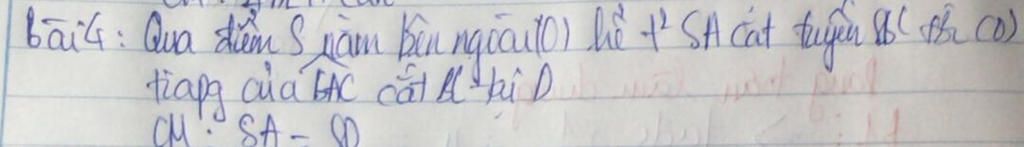 bài 4: Qua điểm S nằm bên ngoài (O) kẻ t² SA cát tuyến SBC của (O)
tia pg của BAC cắt BC tại D
CM: SA = SD